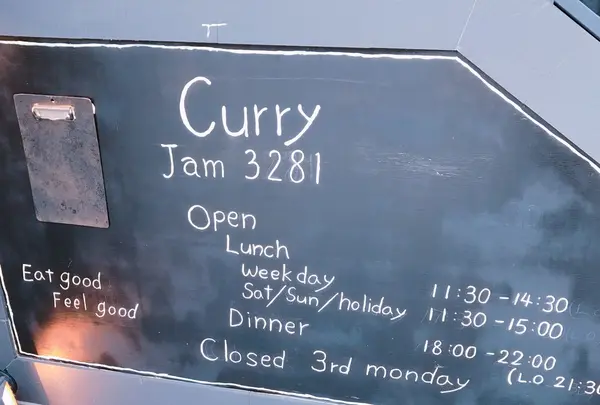 Curry
Jam 3281
Open
Lunch
Weekday 11:30 - 14:30
Sat/Sun/holiday 11:30 - 15:00
Dinner 18:00 - 22:00
(L.O 21:30
Closed 3rd monday
Eat good
Feel good